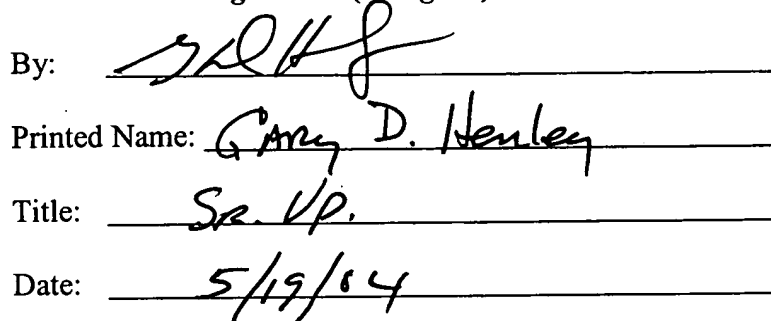 By:
Printed Name: Gary D. Henley
Title: Sr. VP.
Date: 5/19/04